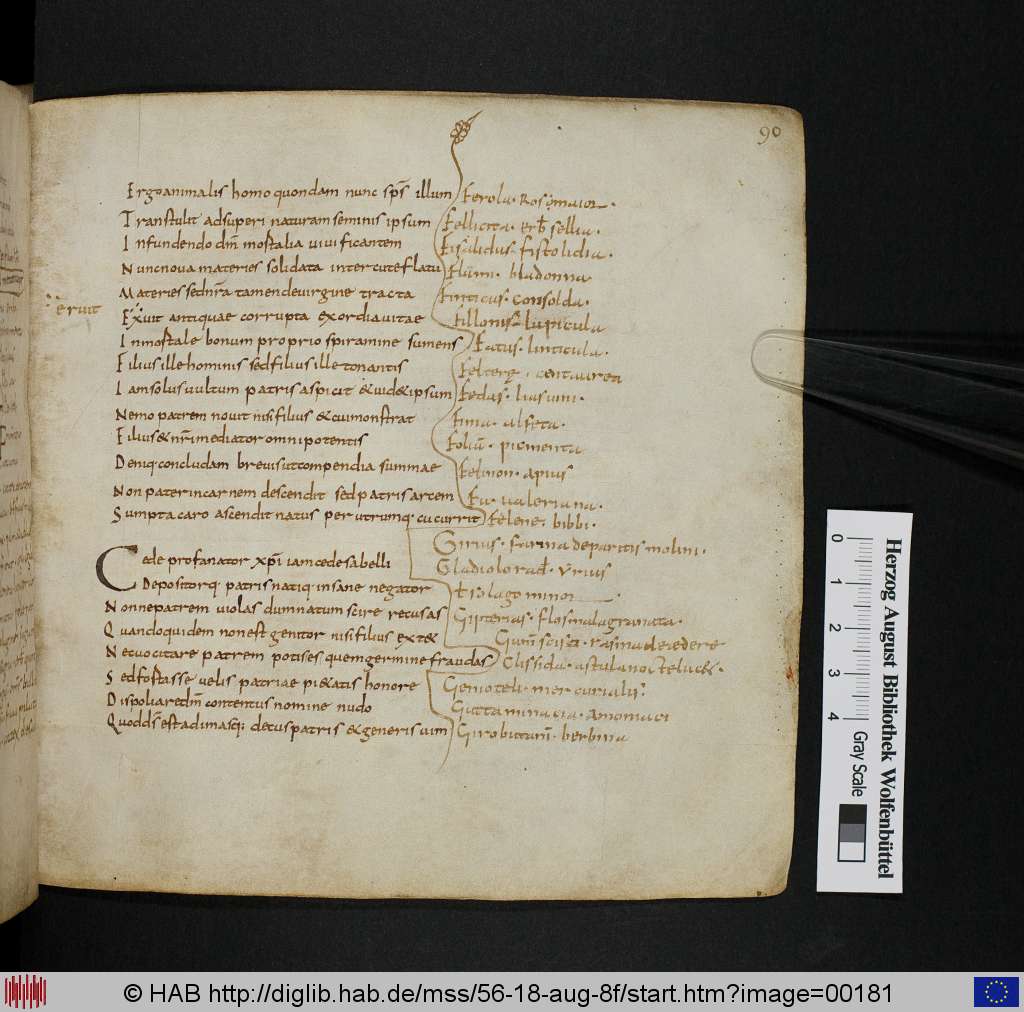 90
Ergo animalis homo quondam nunc sp̄s illum
Transtulit ad superi naturam seminis ipsum
Infundendo dm̄ mortalia vivificantem
Nunc nova materies solidata intercute flatu
Materies sed nr̄a tamen de virgine tracta
Exuit antiquae corrupta exordia vitae
eruit
Inmortale bonum proprio spiramine sumens
Filius ille hominis sed filius ille tonantis
Iam solus vultum patris aspicit & vid& ipsum
Nemo patrem novit nisi filius & cui monstrat
Filius & nr̄i mediator omnipotentis
Deniq; concludam brevis ut compendia summae
Non pater in carnem descendit sed patris artem
Sumpta caro ascendit natus per utrumq; cucurrit
Cede profanator xp̄i iam cede sabelli
Depositorq; patris natiq; insane negator
Nonne patrem violas dum natum scire recusas
Quandoquidem non est genitor nisi filius extet
Nec vocitare patrem potis es quem germine fraudas
Sed fortasse velis patriae pi&atis honore
Dispoliare dm̄ contentus nomine nudo
Quod ds̄ est adimasq; decus patris & generis vim
Ferola. Ros maior.
Fellicita. erb̄ sellia.
Fisalidus. fistolidia.
Flam. bladonna
Finticus. consolda.
Fillonis. lupicula
Fatus. linticula.
Felterę. centaurea
Fedus. lias vini.
Fima. alfeta.
Foliu͞. picmenta
Felinon. apius
Fu. valeriana.
Felene. bibbi.
Girius. farina de paritis molini.
Gladiolo rad̄. Urius
Fislago minor.
Gipterias. flos malagranata.
Gum̄ scissi. rasina de edere
Glissida. astula
Genioteli. mercurialis
Gutta minacia. amomaci
Girobittanu͞. berbina
0 1 2 3 4
Herzog August Bibliothek Wolfenbüttel
Gray Scale
© HAB http://diglib.hab.de/mss/56-18-aug-8f/start.htm?image=00181